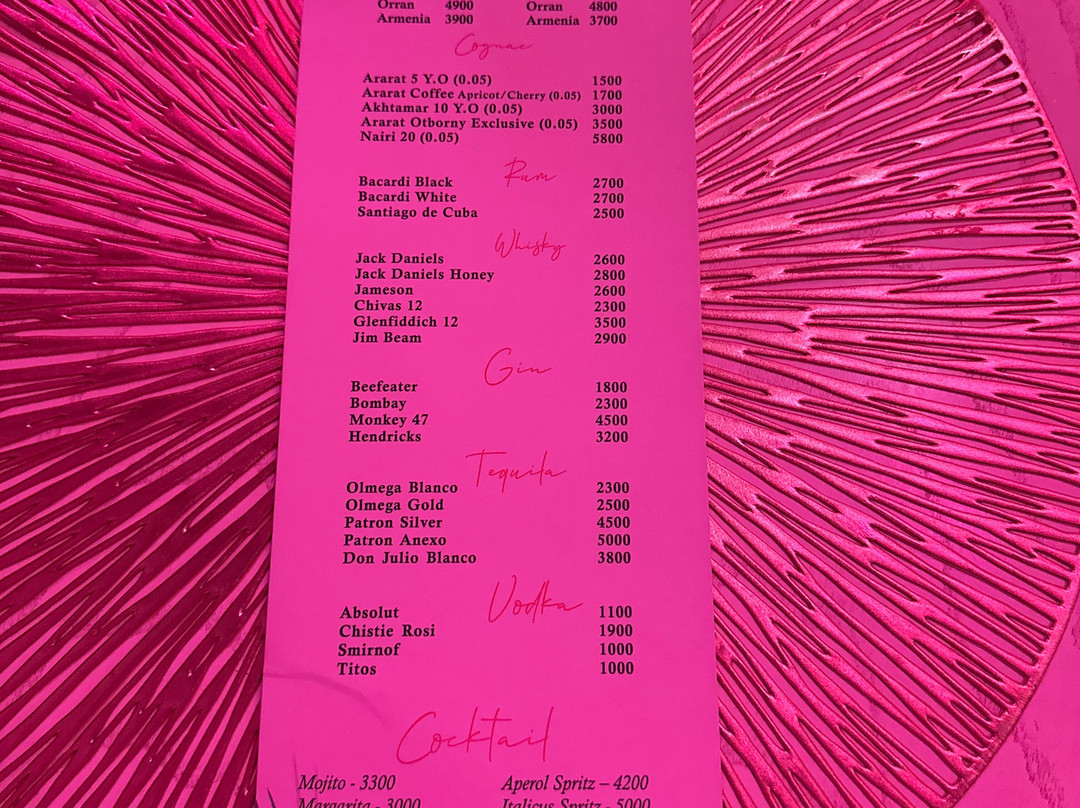 Orran 4900 Orran 4800
Armenia 3900 Armenia 3700
Cognac
Ararat 5 Y.O (0.05) 1500
Ararat Coffee Apricot/Cherry (0.05) 1700
Akhtamar 10 Y.O (0.05) 3000
Ararat Otborny Exclusive (0.05) 3500
Nairi 20 (0.05) 5800
Rum
Bacardi Black 2700
Bacardi White 2700
Santiago de Cuba 2500
Whisky
Jack Daniels 2600
Jack Daniels Honey 2800
Jameson 2600
Chivas 12 2300
Glenfiddich 12 3500
Jim Beam 2900
Gin
Beefeater 1800
Bombay 2300
Monkey 47 4500
Hendricks 3200
Tequila
Olmega Blanco 2300
Olmega Gold 2500
Patron Silver 4500
Patron Anexo 5000
Don Julio Blanco 3800
Vodka
Absolut 1100
Chistie Rosi 1900
Smirnof 1000
Titos 1000
Cocktail
Mojito - 3300 Aperol Spritz – 4200
Margarita - 3000 Italicus Spritz - 5000